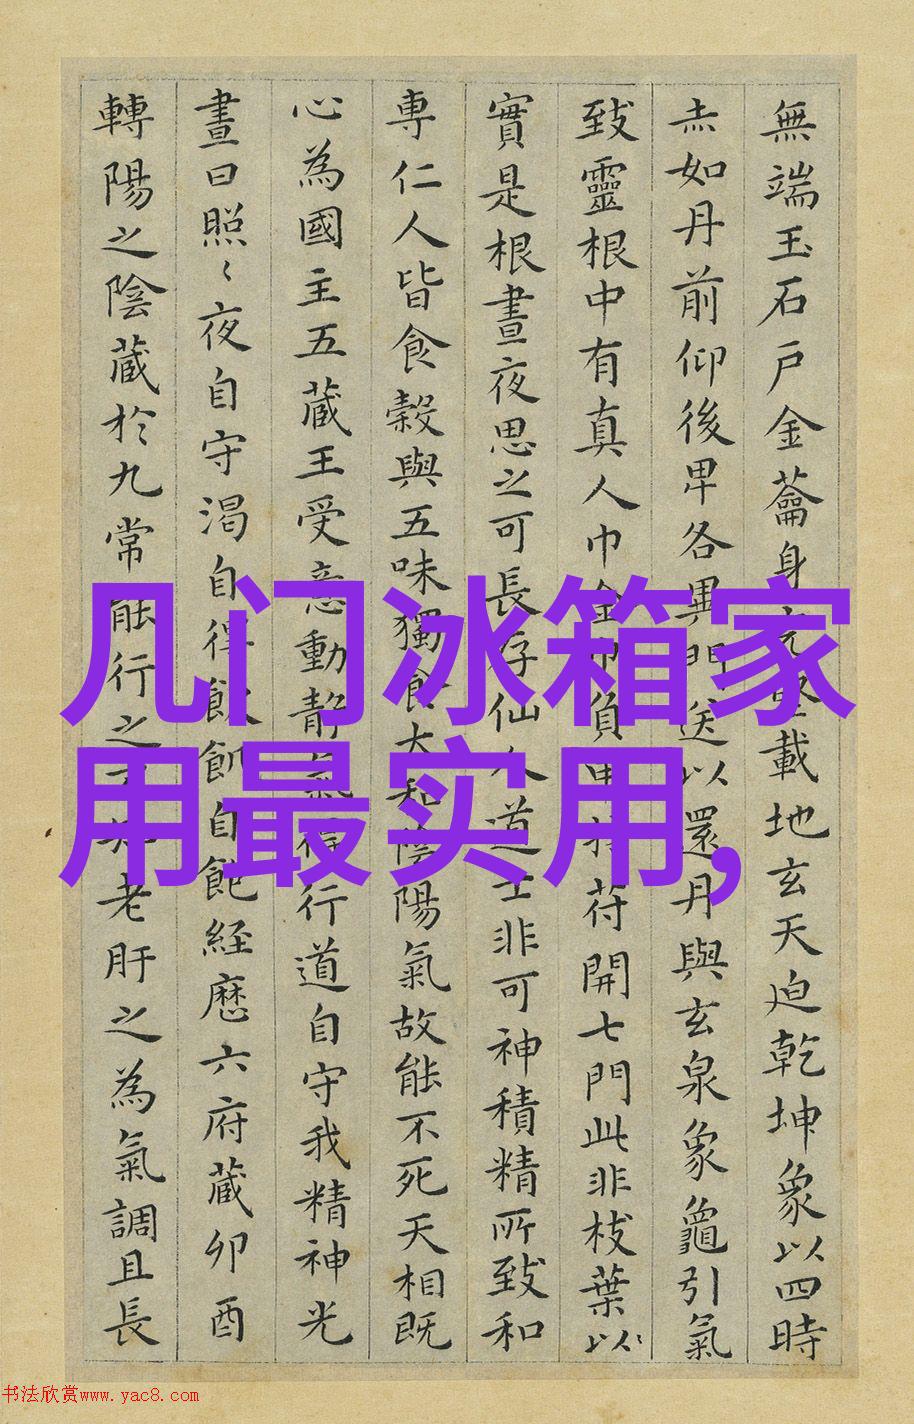 無端玉石戶金蘥身
載地玄天迫乾坤象以四時
赤如丹前仰後卑各異門送以還丹與玄泉象龜引氣
致靈根中有真人巾金巾負甲持苻開七門此非枝葉以
實是根晝夜思之可長存仙人道士非可神積精所致和
專仁人皆食穀與五味獨食太和陰陽氣故能不死天相既
心為國主五藏王受意動靜氣得行道自守我精神光
晝日照〻夜自守渴自得飲飢自飽經歷六府藏卯酉
轉陽之陰藏於九常能行之不知老肝之為氣調且長
几门冰箱家
用最实用,
书法欣赏www.yac8.com